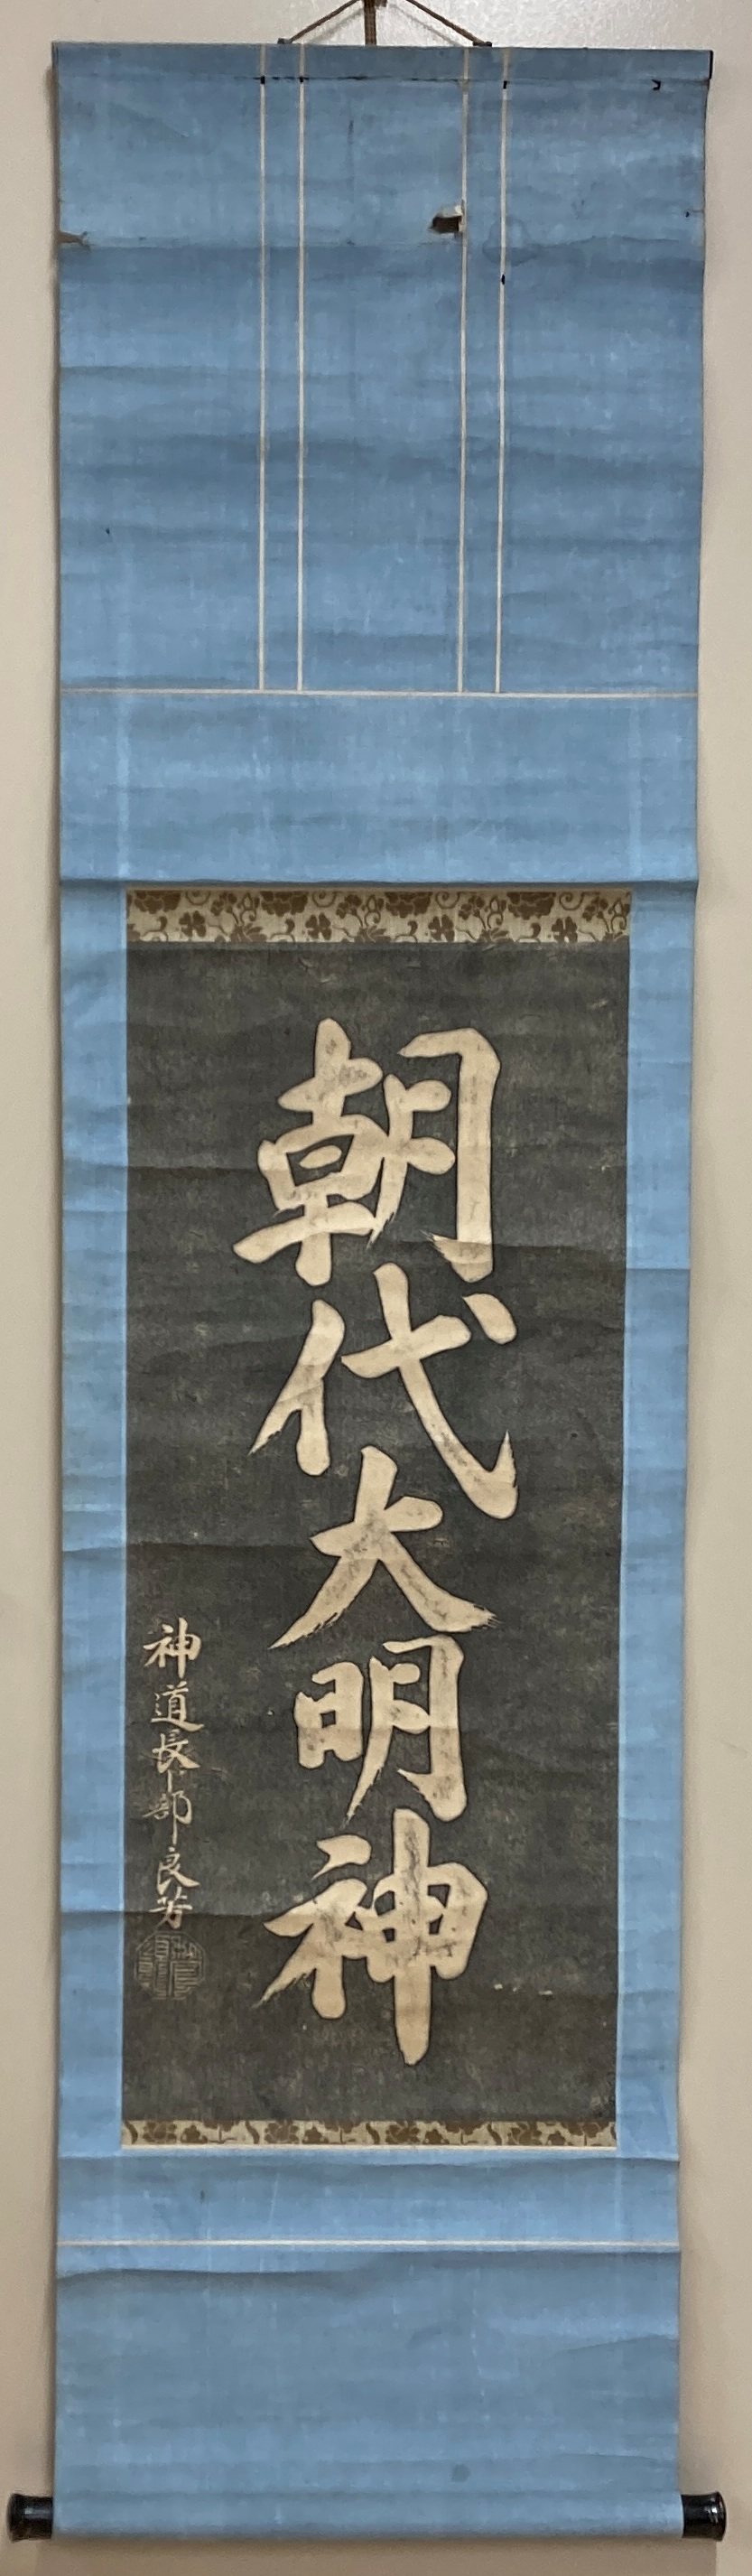 朝代大明神
神道長卜部良芳